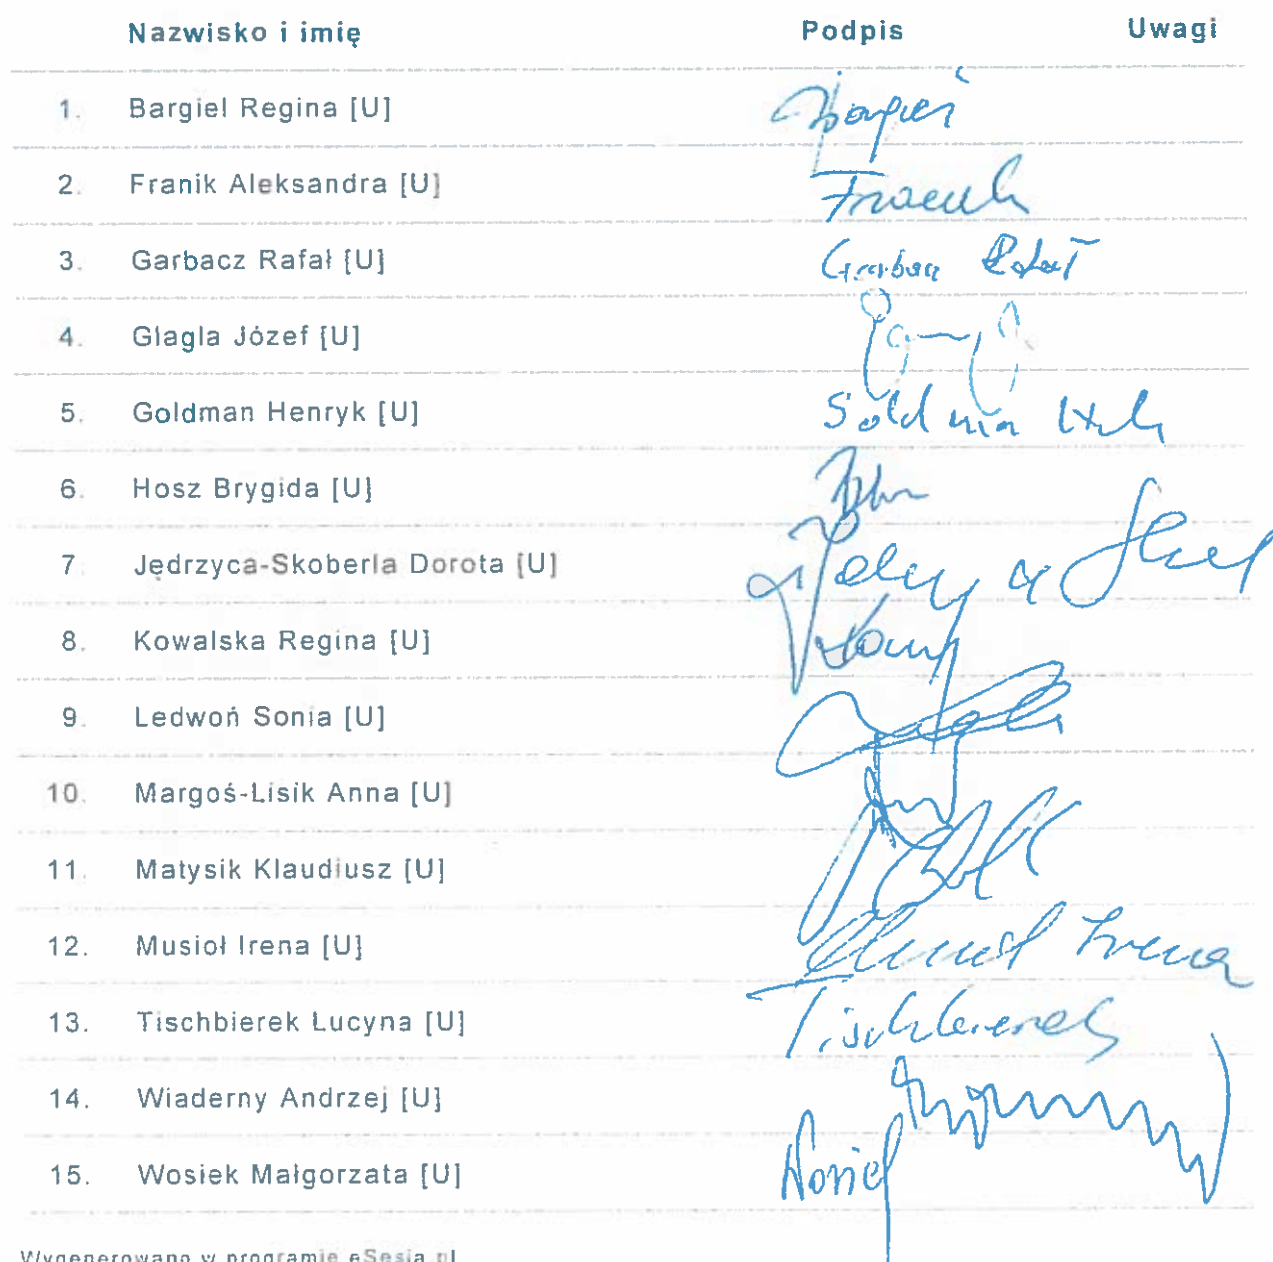 Nazwisko i imię Podpis Uwagi
1. Bargiel Regina [U] Bargieł
2. Franik Aleksandra [U] Franik
3. Garbacz Rafał [U] Garbacz Rafał
4. Glagla Józef [U]
5. Goldman Henryk [U] Goldman
6. Hosz Brygida [U]
7 Jędrzyca-Skoberla Dorota [U]
8. Kowalska Regina [U]
9. Ledwoń Sonia [U]
10. Margoś-Lisik Anna [U]
11. Matysik Klaudiusz [U]
12. Musioł Irena [U] Musioł Irena
13. Tischbierek Lucyna [U] Tischbierek
14. Wiaderny Andrzej [U]
15. Wosiek Małgorzata [U] Wosiek
Wygenerowano w programie eSesja.pl